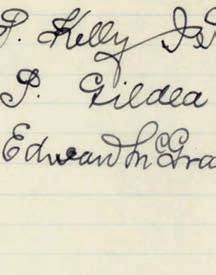 P. Kelly
P. Gildea
Edward McGra